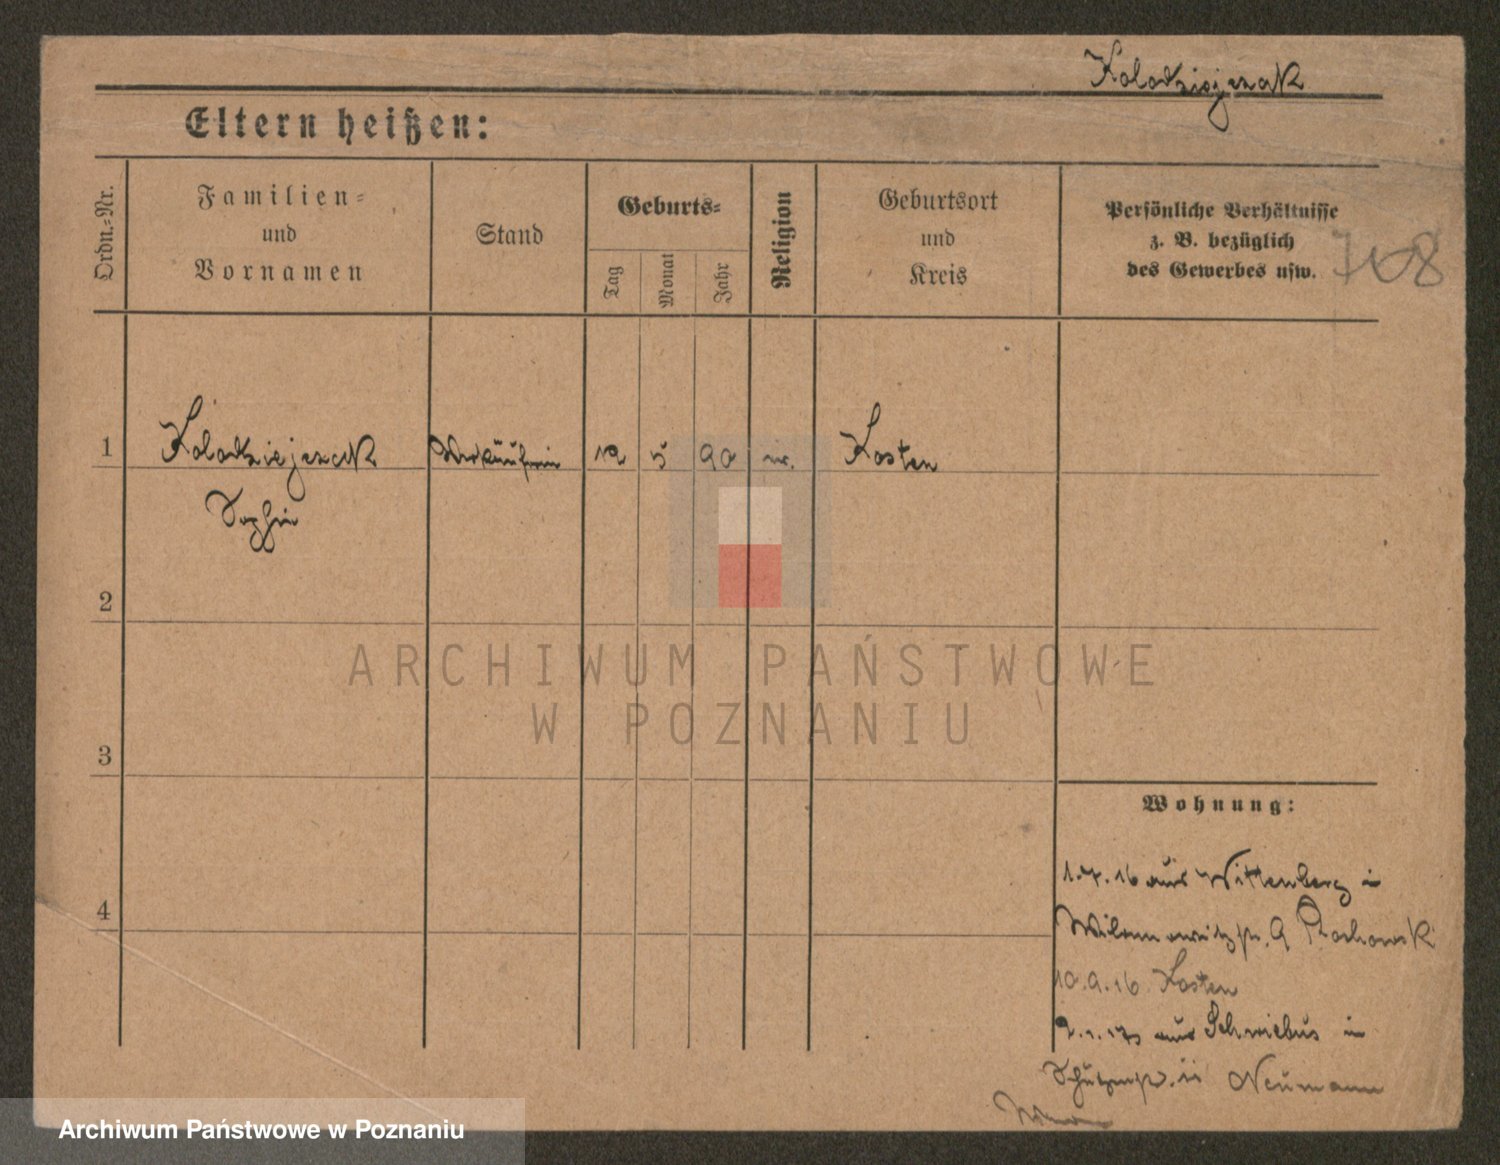 Kolodziejczak
Eltern heißen:
Ordn.-Nr.
Familien-
und
Vornamen
Stand
Geburts-
Tag
Monat
Jahr
Religion
Geburtsort
und
Kreis
Persönliche Verhältnisse
z. B. bezüglich
des Gewerbes usw.
1
Kolodziejczak
Sophie
Verkäuferin
12
5
90
Kosten
2
3
4
Wohnung:
1.7.16 aus Wittenberg in
10.9.16 Kosten
aus Schwiebus in
Neumann
ARCHIWUM PAŃSTWOWE
W POZNANIU
Archiwum Państwowe w Poznaniu